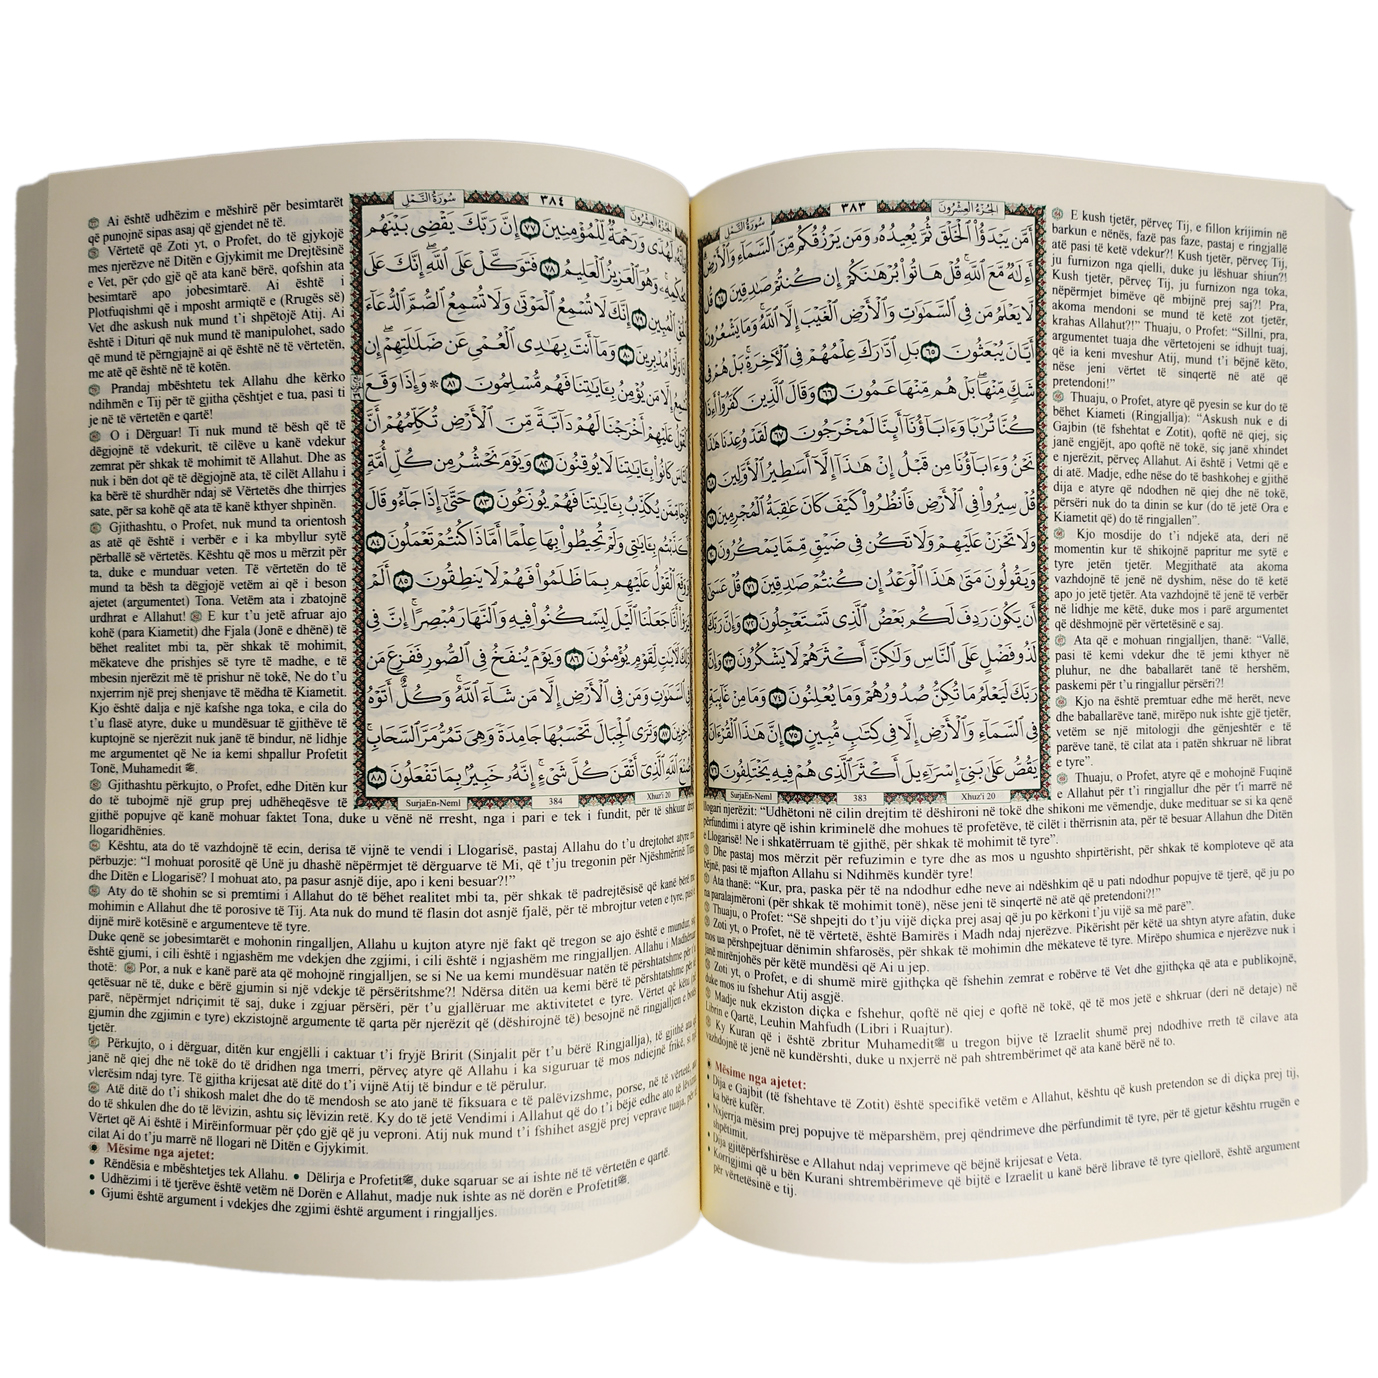 سُورَةُ النَّمْلِ
٣٨٣
الجُزْءُ العِشْرُونَ
أَمَّن يَبْدَؤُا۟ ٱلْخَلْقَ ثُمَّ يُعِيدُهُۥ وَمَن يَرْزُقُكُم مِّنَ ٱلسَّمَآءِ وَٱلْأَرْضِ
أَءِلَٰهٌ مَّعَ ٱللَّهِ قُلْ هَاتُوا۟ بُرْهَٰنَكُمْ إِن كُنتُمْ صَٰدِقِينَ ٦٤ قُل
لَّا يَعْلَمُ مَن فِى ٱلسَّمَٰوَٰتِ وَٱلْأَرْضِ ٱلْغَيْبَ إِلَّا ٱللَّهُ وَمَا يَشْعُرُونَ
أَيَّانَ يُبْعَثُونَ ٦٥ بَلِ ٱدَّٰرَكَ عِلْمُهُمْ فِى ٱلْـَٔاخِرَةِ بَلْ هُمْ فِى
شَكٍّ مِّنْهَا بَلْ هُم مِّنْهَا عَمُونَ ٦٦ وَقَالَ ٱلَّذِينَ كَفَرُوٓا۟ أَءِذَا
كُنَّا تُرَٰبًا وَءَابَآؤُنَآ أَئِنَّا لَمُخْرَجُونَ ٦٧ لَقَدْ وُعِدْنَا هَٰذَا
نَحْنُ وَءَابَآؤُنَا مِن قَبْلُ إِنْ هَٰذَآ إِلَّآ أَسَٰطِيرُ ٱلْأَوَّلِينَ ٦٨
قُلْ سِيرُوا۟ فِى ٱلْأَرْضِ فَٱنظُرُوا۟ كَيْفَ كَانَ عَٰقِبَةُ ٱلْمُجْرِمِينَ ٦٩
وَلَا تَحْزَنْ عَلَيْهِمْ وَلَا تَكُن فِى ضَيْقٍ مِّمَّا يَمْكُرُونَ ٧٠
وَيَقُولُونَ مَتَىٰ هَٰذَا ٱلْوَعْدُ إِن كُنتُمْ صَٰدِقِينَ ٧١ قُلْ عَسَىٰٓ
أَن يَكُونَ رَدِفَ لَكُم بَعْضُ ٱلَّذِى تَسْتَعْجِلُونَ ٧٢ وَإِنَّ رَبَّكَ
لَذُو فَضْلٍ عَلَى ٱلنَّاسِ وَلَٰكِنَّ أَكْثَرَهُمْ لَا يَشْكُرُونَ ٧٣ وَإِنَّ
رَبَّكَ لَيَعْلَمُ مَا تُكِنُّ صُدُورُهُمْ وَمَا يُعْلِنُونَ ٧٤ وَمَا مِنْ غَآئِبَةٍ
فِى ٱلسَّمَآءِ وَٱلْأَرْضِ إِلَّا فِى كِتَٰبٍ مُّبِينٍ ٧٥ إِنَّ هَٰذَا ٱلْقُرْءَانَ
يَقُصُّ عَلَىٰ بَنِىٓ إِسْرَٰٓءِيلَ أَكْثَرَ ٱلَّذِى هُمْ فِيهِ يَخْتَلِفُونَ ٧٦
SurjaEn-Neml
383
Xhuz'i 20
E kush tjetër, përveç Tij, e fillon krijimin në
barkun e nënës, fazë pas faze, pastaj e ringjallë
atë pasi të ketë vdekur?! Kush tjetër, përveç Tij,
ju furnizon nga qielli, duke ju lëshuar shiun?!
Kush tjetër, përveç Tij, ju furnizon nga toka,
nëpërmjet bimëve që mbijnë prej saj?! Pra,
akoma mendoni se mund të ketë zot tjetër,
krahas Allahut?!" Thuaju, o Profet: "Sillni, pra,
argumentet tuaja dhe vërtetojeni se idhujt tuaj,
që ia keni mveshur Atij, mund t'i bëjnë këto,
nëse jeni vërtet të sinqertë në atë që
pretendoni!"
Thuaju, o Profet, atyre që pyesin se kur do të
bëhet Kiameti (Ringjallja): "Askush nuk e di
Gajbin (të fshehtat e Zotit), qoftë në qiej, siç
janë engjëjt, apo qoftë në tokë, siç janë xhindet
e njerëzit, përveç Allahut. Ai është i Vetmi që e
di atë. Madje, edhe nëse do të bashkohej e gjithë
dija e atyre që ndodhen në qiej dhe në tokë,
përsëri nuk do ta dinin se kur (do të jetë Ora e
Kiametit që) do të ringjallen".
Kjo mosdije do t'i ndjekë ata, deri në
momentin kur të shikojnë papritur me sytë e
tyre jetën tjetër. Megjithatë ata akoma
vazhdojnë të jenë në dyshim, nëse do të ketë
apo jo jetë tjetër. Ata vazhdojnë të jenë të verbër
në lidhje me këtë, duke mos i parë argumentet
që dëshmojnë për vërtetësinë e saj.
Ata që e mohuan ringjalljen, thanë: "Vallë,
pasi të kemi vdekur dhe të jemi kthyer në
pluhur, ne dhe baballarët tanë të hershëm,
paskemi për t'u ringjallur përsëri?!
Kjo na është premtuar edhe më herët, neve
dhe baballarëve tanë, mirëpo nuk ishte gjë tjetër,
vetëm se një mitologji dhe gënjeshtër e të
parëve tanë, të cilat ata i patën shkruar në librat
e tyre".
Thuaju, o Profet, atyre që e mohojnë Fuqinë
e Allahut për t'i ringjallur dhe për t'i marrë në
llogari njerëzit: "Udhëtoni në cilin drejtim të dëshironi në tokë dhe shikoni me vëmendje, duke medituar se si ka qenë
përfundimi i atyre që ishin kriminelë dhe mohues të profetëve, të cilët i thërrisnin ata, për të besuar Allahun dhe Ditën
e Llogarisë! Ne i shkatërruam të gjithë, për shkak të mohimit të tyre".
Dhe pastaj mos mërzit për refuzimin e tyre dhe as mos u ngushto shpirtërisht, për shkak të komploteve që ata
bëjnë, pasi të mjafton Allahu si Ndihmës kundër tyre!
Ata thanë: "Kur, pra, paska për të na ndodhur edhe neve ai ndëshkim që u pati ndodhur popujve të tjerë, që ju po
na paralajmëroni (për shkak të mohimit tonë), nëse jeni të sinqertë në atë që pretendoni?!"
Thuaju, o Profet: "Së shpejti do t'ju vijë diçka prej asaj që ju po kërkoni t'ju vijë sa më parë".
Zoti yt, o Profet, në të vërtetë, është Bamirës i Madh ndaj njerëzve. Pikërisht për këtë ua shtyn atyre afatin, duke
mos ua përshpejtuar dënimin shfarosës, për shkak të mohimin dhe mëkateve të tyre. Mirëpo shumica e njerëzve nuk i
janë mirënjohës për këtë mundësi që Ai u jep.
Zoti yt, o Profet, e di shumë mirë gjithçka që fshehin zemrat e robërve të Vet dhe gjithçka që ata e publikojnë,
duke mos iu fshehur Atij asgjë.
Madje nuk ekziston diçka e fshehur, qoftë në qiej e qoftë në tokë, që të mos jetë e shkruar (deri në detaje) në
Librin e Qartë, Leuhin Mahfudh (Libri i Ruajtur).
Ky Kuran që i është zbritur Muhamedit ﷺ u tregon bijve të Izraelit shumë prej ndodhive rreth të cilave ata
vazhdojnë të jenë në kundërshti, duke u nxjerrë në pah shtrembërimet që ata kanë bërë në to.
Mësime nga ajetet:
• Dija e Gajbit (të fshehtave të Zotit) është specifikë vetëm e Allahut, kështu që kush pretendon se di diçka prej tij,
ka bërë kufër.
• Nxjerrja mësim prej popujve të mëparshëm, prej qëndrimeve dhe përfundimit të tyre, për të gjetur kështu rrugën e
shpëtimit.
• Dija gjitëpërfshirëse e Allahut ndaj veprimeve që bëjnë krijesat e Veta.
• Korrigjimi që u bën Kurani shtrembërimeve që bijtë e Izraelit u kanë bërë librave të tyre qiellorë, është argument
për vërtetësinë e tij.
سُورَةُ النَّمْلِ
٣٨٤
الجُزْءُ العِشْرُونَ
وَإِنَّهُۥ لَهُدًى وَرَحْمَةٌ لِّلْمُؤْمِنِينَ ٧٧ إِنَّ رَبَّكَ يَقْضِى بَيْنَهُم
بِحُكْمِهِۦ وَهُوَ ٱلْعَزِيزُ ٱلْعَلِيمُ ٧٨ فَتَوَكَّلْ عَلَى ٱللَّهِ إِنَّكَ عَلَى
ٱلْحَقِّ ٱلْمُبِينِ ٧٩ إِنَّكَ لَا تُسْمِعُ ٱلْمَوْتَىٰ وَلَا تُسْمِعُ ٱلصُّمَّ ٱلدُّعَآءَ
إِذَا وَلَّوْا۟ مُدْبِرِينَ ٨٠ وَمَآ أَنتَ بِهَٰدِى ٱلْعُمْىِ عَن ضَلَٰلَتِهِمْ إِن
تُسْمِعُ إِلَّا مَن يُؤْمِنُ بِـَٔايَٰتِنَا فَهُم مُّسْلِمُونَ ٨١ ۞ وَإِذَا وَقَعَ
ٱلْقَوْلُ عَلَيْهِمْ أَخْرَجْنَا لَهُمْ دَآبَّةً مِّنَ ٱلْأَرْضِ تُكَلِّمُهُمْ أَنَّ
ٱلنَّاسَ كَانُوا۟ بِـَٔايَٰتِنَا لَا يُوقِنُونَ ٨٢ وَيَوْمَ نَحْشُرُ مِن كُلِّ أُمَّةٍ
فَوْجًا مِّمَّن يُكَذِّبُ بِـَٔايَٰتِنَا فَهُمْ يُوزَعُونَ ٨٣ حَتَّىٰٓ إِذَا جَآءُو قَالَ
أَكَذَّبْتُم بِـَٔايَٰتِى وَلَمْ تُحِيطُوا۟ بِهَا عِلْمًا أَمَّاذَا كُنتُمْ تَعْمَلُونَ ٨٤
وَوَقَعَ ٱلْقَوْلُ عَلَيْهِم بِمَا ظَلَمُوا۟ فَهُمْ لَا يَنطِقُونَ ٨٥ أَلَمْ
يَرَوْا۟ أَنَّا جَعَلْنَا ٱلَّيْلَ لِيَسْكُنُوا۟ فِيهِ وَٱلنَّهَارَ مُبْصِرًا إِنَّ فِى
ذَٰلِكَ لَـَٔايَٰتٍ لِّقَوْمٍ يُؤْمِنُونَ ٨٦ وَيَوْمَ يُنفَخُ فِى ٱلصُّورِ فَفَزِعَ مَن
فِى ٱلسَّمَٰوَٰتِ وَمَن فِى ٱلْأَرْضِ إِلَّا مَن شَآءَ ٱللَّهُ وَكُلٌّ أَتَوْهُ
دَٰخِرِينَ ٨٧ وَتَرَى ٱلْجِبَالَ تَحْسَبُهَا جَامِدَةً وَهِىَ تَمُرُّ مَرَّ ٱلسَّحَابِ
صُنْعَ ٱللَّهِ ٱلَّذِىٓ أَتْقَنَ كُلَّ شَىْءٍ إِنَّهُۥ خَبِيرٌۢ بِمَا تَفْعَلُونَ ٨٨
SurjaEn-Neml
384
Xhuz'i 20
Ai është udhëzim e mëshirë për besimtarët
që punojnë sipas asaj që gjendet në të.
Vërtetë që Zoti yt, o Profet, do të gjykojë
mes njerëzve në Ditën e Gjykimit me Drejtësinë
e Vet, për çdo gjë që ata kanë bërë, qofshin ata
besimtarë apo jobesimtarë. Ai është i
Plotfuqishmi që i mposht armiqtë e (Rrugës së)
Vet dhe askush nuk mund t'i shpëtojë Atij. Ai
është i Dituri që nuk mund të manipulohet, sado
që mund të përngjajnë ai që është në të vërtetën,
me atë që është në të kotën.
Prandaj mbështetu tek Allahu dhe kërko
ndihmën e Tij për të gjitha çështjet e tua, pasi ti
je në të vërtetën e qartë!
O i Dërguar! Ti nuk mund të bësh që të
dëgjojnë të vdekurit, të cilëve u kanë vdekur
zemrat për shkak të mohimit të Allahut. Dhe as
nuk i bën dot që të dëgjojnë ata, të cilët Allahu i
ka bërë të shurdhër ndaj së Vërtetës dhe thirrjes
sate, për sa kohë që ata të kanë kthyer shpinën.
Gjithashtu, o Profet, nuk mund ta orientosh
as atë që është i verbër e i ka mbyllur sytë
përballë së vërtetës. Kështu që mos u mërzit për
ta, duke e munduar veten. Të vërtetën do të
mund ta bësh ta dëgjojë vetëm ai që i beson
ajetet (argumentet) Tona. Vetëm ata i zbatojnë
urdhrat e Allahut! E kur t'u jetë afruar ajo
kohë (para Kiametit) dhe Fjala (Jonë e dhënë) të
bëhet realitet mbi ta, për shkak të mohimit,
mëkateve dhe prishjes së tyre të madhe, e të
mbesin njerëzit më të prishur në tokë, Ne do t'u
nxjerrim një prej shenjave të mëdha të Kiametit.
Kjo është dalja e një kafshe nga toka, e cila do
t'u flasë atyre, duke u mundësuar të gjithëve të
kuptojnë se njerëzit nuk janë të bindur, në lidhje
me argumentet që Ne ia kemi shpallur Profetit
Tonë, Muhamedit ﷺ.
Gjithashtu përkujto, o Profet, edhe Ditën kur
do të tubojmë një grup prej udhëheqësve të
gjithë popujve që kanë mohuar faktet Tona, duke u vënë në rresht, nga i pari e tek i fundit, për të shkuar drejt
llogaridhënies.
Kështu, ata do të vazhdojnë të ecin, derisa të vijnë te vendi i Llogarisë, pastaj Allahu do t'u drejtohet atyre me
përbuzje: "I mohuat porositë që Unë ju dhashë nëpërmjet të dërguarve të Mi, që t'ju tregonin për Njëshmërinë Time
dhe Ditën e Llogarisë? I mohuat ato, pa pasur asnjë dije, apo i keni besuar?!"
Aty do të shohin se si premtimi i Allahut do të bëhet realitet mbi ta, për shkak të padrejtësisë që kanë bërë me
mohimin e Allahut dhe të porosive të Tij. Ata nuk do mund të flasin dot asnjë fjalë, për të mbrojtur veten e tyre, pasi e
dijnë mirë kotësinë e argumenteve të tyre.
Duke qenë se jobesimtarët e mohonin ringalljen, Allahu u kujton atyre një fakt që tregon se ajo është e mundur, siç
është gjumi, i cili është i ngjashëm me vdekjen dhe zgjimi, i cili është i ngjashëm me ringjalljen. Allahu i Madhëruar
thotë: Por, a nuk e kanë parë ata që mohojnë ringjalljen, se si Ne ua kemi mundësuar natën të përshtatshme për t'u
qetësuar në të, duke e bërë gjumin si një vdekje të përsëritshme?! Ndërsa ditën ua kemi bërë të përshtatshme për të
parë, nëpërmjet ndriçimit të saj, duke i zgjuar përsëri, për t'u gjallëruar me aktivitetet e tyre. Vërtet që këtu (në
gjumin dhe zgjimin e tyre) ekzistojnë argumente të qarta për njerëzit që (dëshirojnë të) besojnë në ringjalljen e botës
tjetër.
Përkujto, o i dërguar, ditën kur engjëlli i caktuar t'i fryjë Bririt (Sinjalit për t'u bërë Ringjallja), të gjithë ata që
janë në qiej dhe në tokë do të dridhen nga tmerri, përveç atyre që Allahu i ka siguruar të mos ndiejnë frikë, si një
vlerësim ndaj tyre. Të gjitha krijesat atë ditë do t'i vijnë Atij të bindur e të përulur.
Atë ditë do t'i shikosh malet dhe do të mendosh se ato janë të fiksuara e të palëvizshme, porse, në të vërtetë, ato
do të shkulen dhe do të lëvizin, ashtu siç lëvizin retë. Ky do të jetë Vendimi i Allahut që do t'i bëjë edhe ato të lëvizin.
Vërtet që Ai është i Mirëinformuar për çdo gjë që ju veproni. Atij nuk mund t'i fshihet asgjë prej veprave tuaja, për të
cilat Ai do t'ju marrë në llogari në Ditën e Gjykimit.
Mësime nga ajetet:
• Rëndësia e mbështetjes tek Allahu. • Dëlirja e Profetitﷺ, duke sqaruar se ai ishte në të vërtetën e qartë.
• Udhëzimi i të tjerëve është vetëm në Dorën e Allahut, madje nuk ishte as në dorën e Profetitﷺ.
• Gjumi është argument i vdekjes dhe zgjimi është argument i ringjalljes.